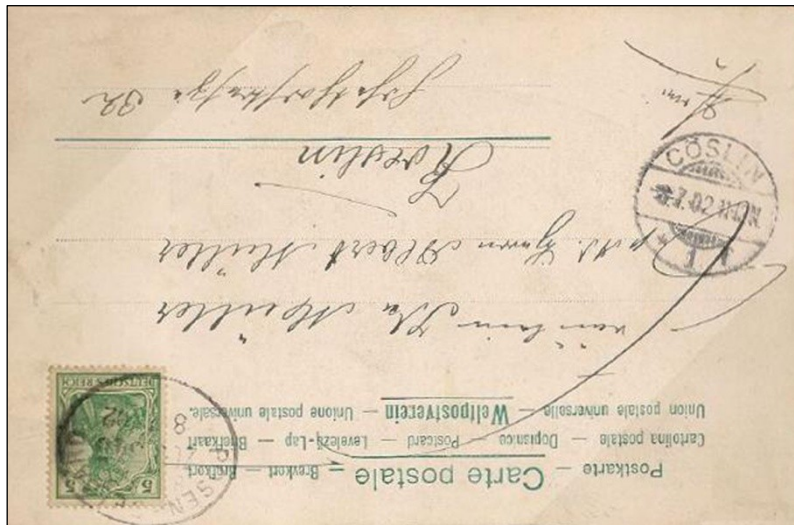 Postkarte — Carte postale — Brevkort — Briefkort
Cartolina postale — Dopisnice — Postcard — Levelezö-Lap — Briefkaart
Union postale universelle — Weltpostverein — Unione postale universale.
5 5
DEUTSCHES REICH
8
Fräulein Ida Müller
p. Ad. Herrn Albert Müller
Koeslin
32
CÖSLIN
7.02.11-12N
* 1